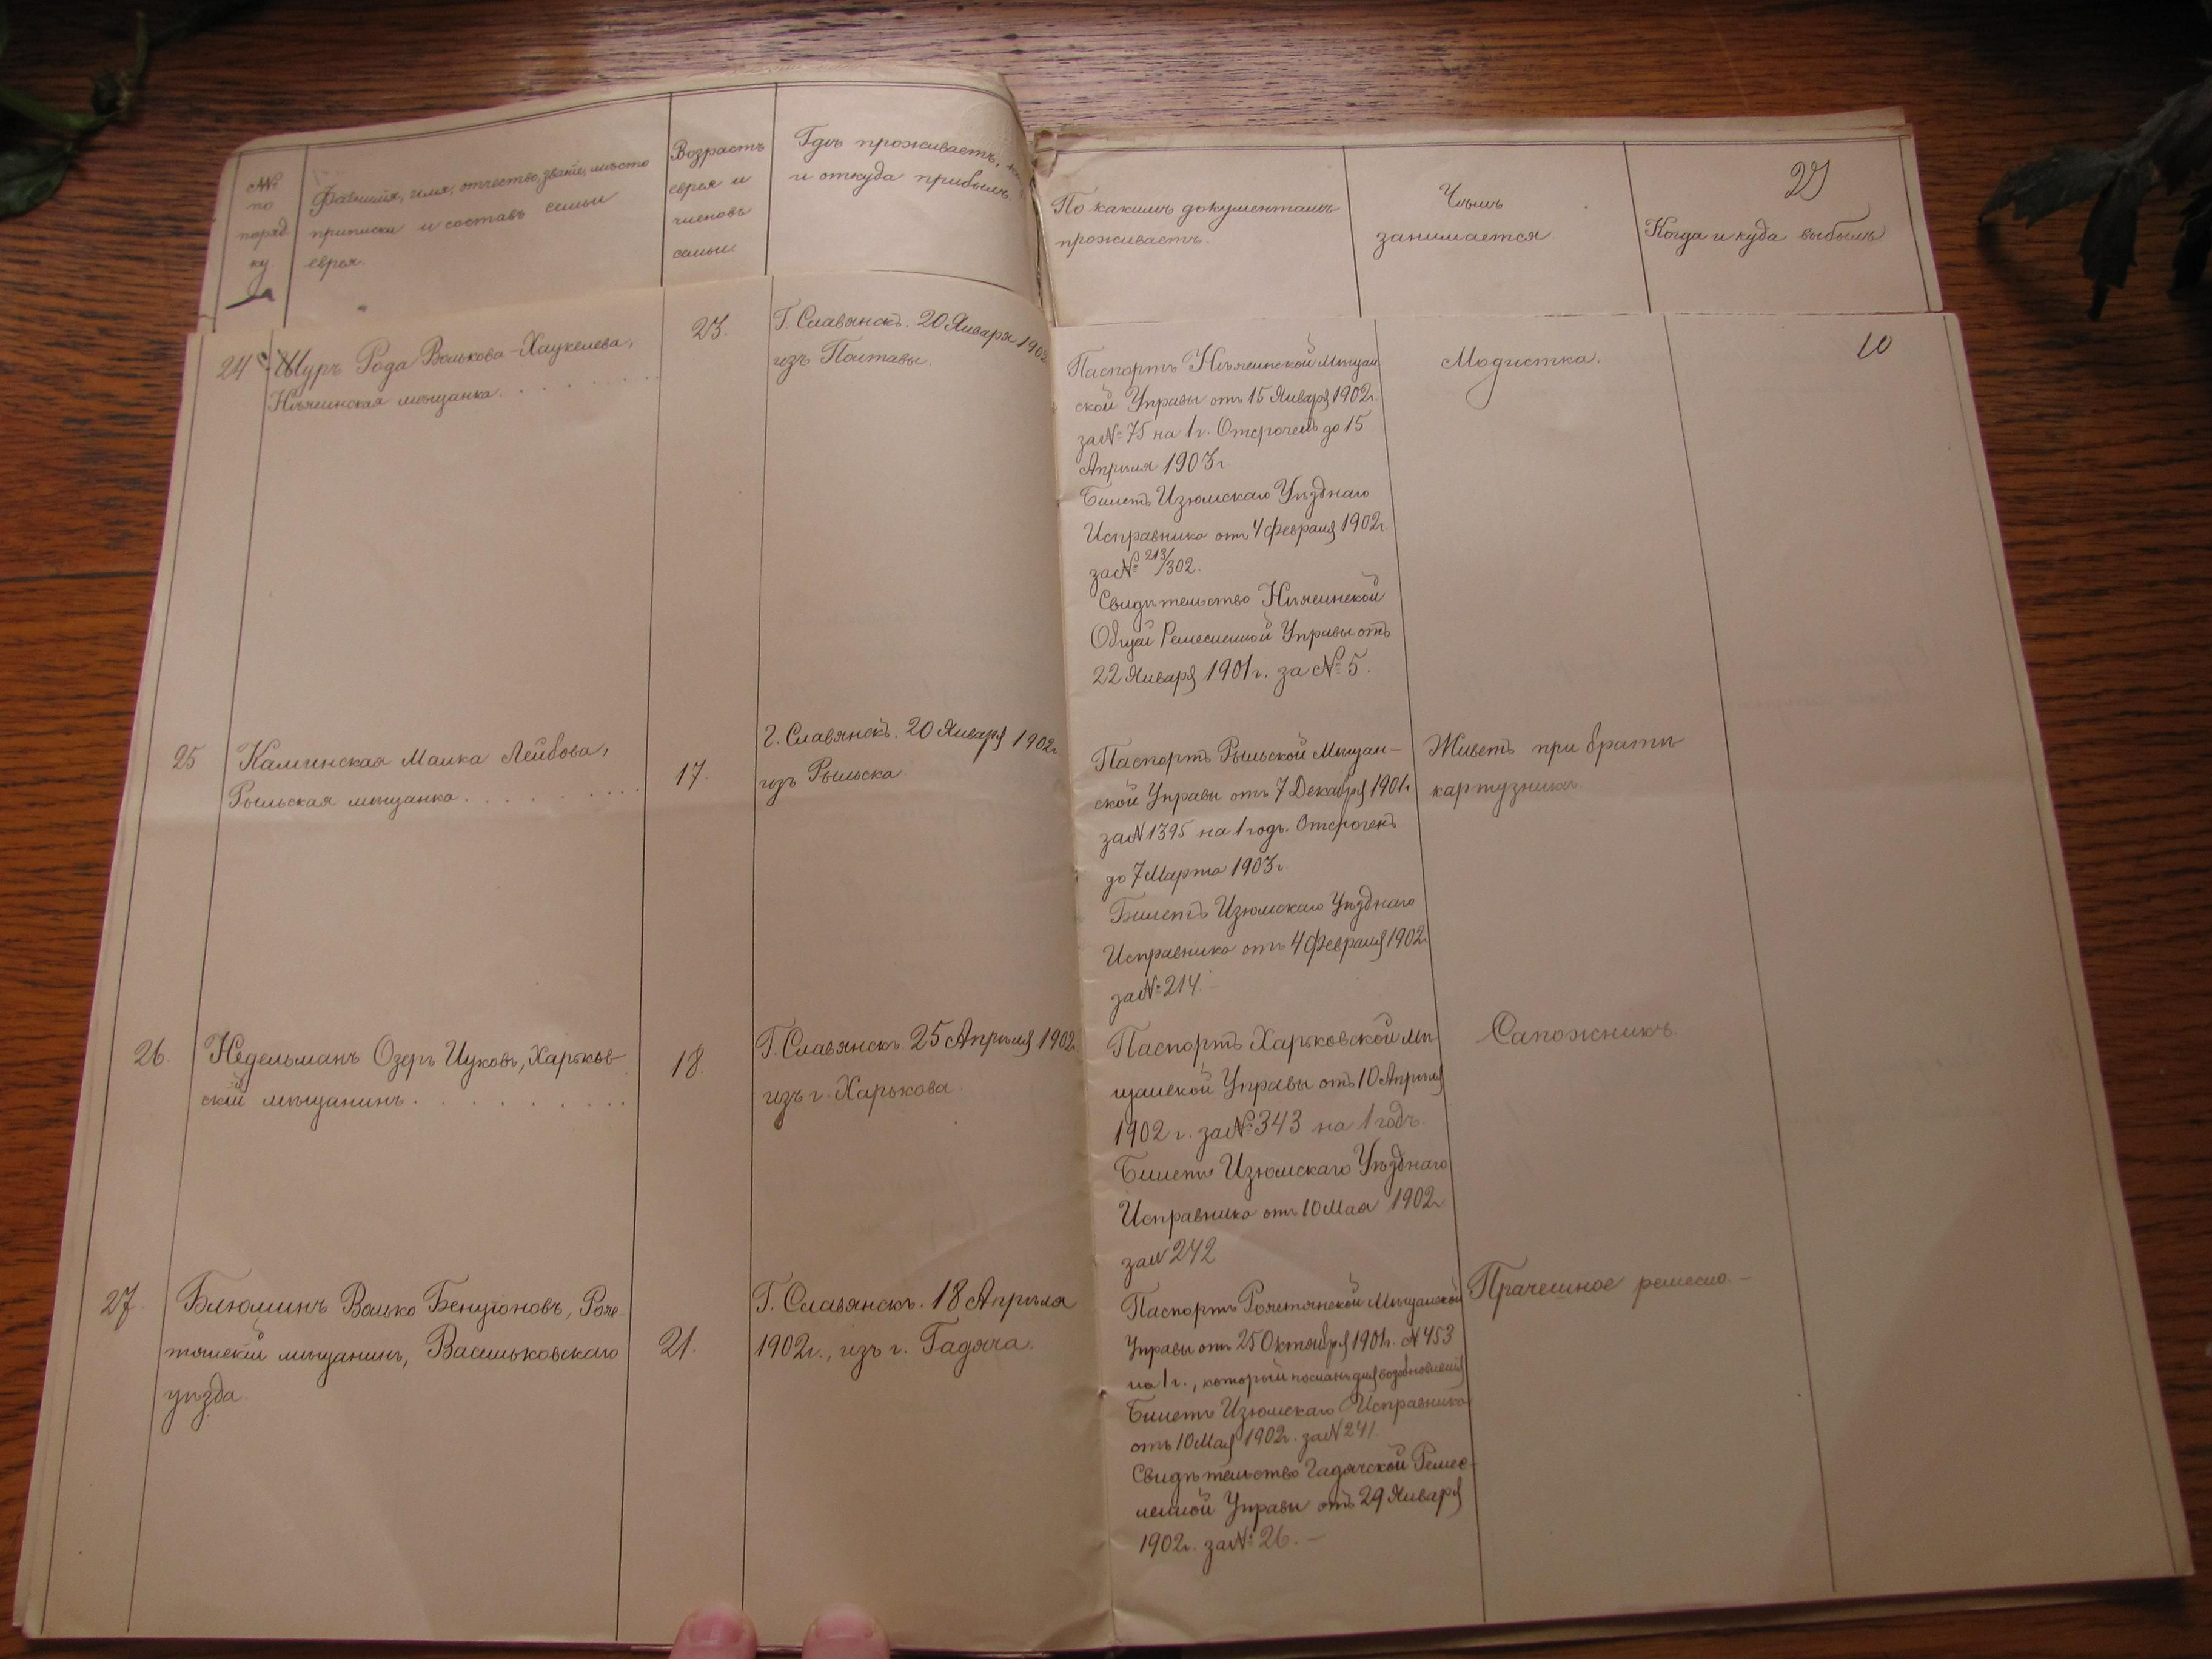 №№
по
поряд
ку
Фамилія, имя, отчество, званіе, мѣсто
приписки и составъ семьи
еврея.
Возрастъ
еврея и
членовъ
семьи.
Гдѣ проживаетъ,
и откуда прибылъ.
По какимъ документамъ
проживаетъ.
Чѣмъ
занимается
Когда и куда выбылъ
10
24
Шуръ Рода Велькова-Хаукелева,
Нѣжинская мѣщанка
23.
Г. Славянскъ. 20 Января 1902
изъ Полтавы.
Паспортъ Нѣжинской Мѣщан
ской Управы отъ 15 Января 1902г.
за № 75 на 1 г. Отсроченъ до 15
Апрѣля 1903 г
Билетъ Изюмскаго Уѣзднаго
Исправника отъ 4 Февраля 1902г.
за № 213/302.
Свидѣтельство Нѣжинской
Общей Ремесленной Управы отъ
22 Января 1901 г. за № 5.
Модистка.
25
Каминская Малка Лейбова,
Рыльская мѣщанка
17.
Г. Славянскъ. 20 Января 1902г.
изъ Рыльска
Паспортъ Рыльской Мѣщан-
ской Управы отъ 7 Декабря 1901г
за № 1395 на 1 годъ. Отсроченъ
до 7 Марта 1903 г
Билетъ Изюмскаго Уѣзднаго
Исправника отъ 4 Февраля 1902г
за № 214.-
Живетъ при братѣ
картузникѣ.
26.
Недельманъ Озеръ Ицковъ, Харьков-
скій мѣщанинъ
18.
Г. Славянскъ. 25 Апрѣля 1902г.
изъ г. Харькова.
Паспортъ Харьковской мѣ-
щанской Управы отъ 10 Апрѣля
1902 г. за № 343 на 1 годъ.
Билетъ Изюмскаго Уѣзднаго
Исправника отъ 10 Мая 1902г
за № 242
Сапожникъ.
27.
Блюминъ Волько Бенціоновъ, Роже-
тянскій мѣщанинъ, Васильковскаго
уѣзда.
21.
Г. Славянскъ. 18 Апрѣля
1902г., изъ г. Гадяча.
Паспортъ Рожетянской Мѣщанской
Управы отъ 25 Октября 1901г. № 453
на 1 г., который посланъ для возобновленія
Билетъ Изюмскаго Исправника
отъ 10 Мая 1902г. за № 241
Свидѣтельство Гадячской Ремес-
ленной Управы отъ 29 Января
1902г. за № 26. -
Прачешное ремесло. -